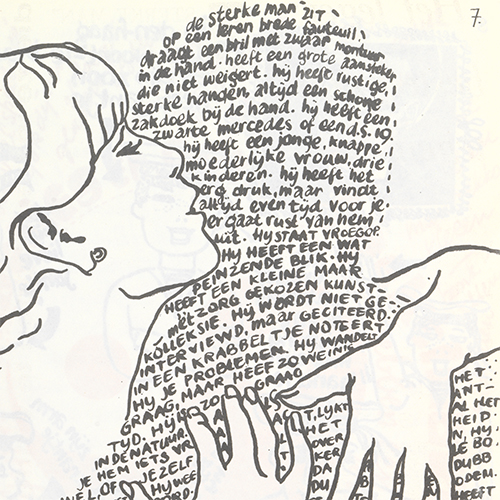 7.
de sterke man ZIT
op een leren brede fauteuil
draagt een bril met zwaar montuur
in de hand. heeft een grote aansteker
die niet weigert. hij heeft rustige,
sterke handen, altijd een schone
zakdoek bij de hand. hij heeft een
zwarte mercedes of een d.s. 19,
hij heeft een jonge, knappe,
moederlijke vrouw, drie
kinderen. hij heeft het
erg druk, maar vindt
altijd even tijd voor je.
er gaat rust van hem
uit. HIJ STAAT VROEG OP.
HIJ HEEFT EEN WAT
PEINZENDE BLIK. HIJ
HEEFT EEN KLEINE MAAR
MET ZORG GEKOZEN KUNST-
KOLLEKSIE. HIJ WORDT NIET GE-
INTERVIEWD, maar GECITEERD.
IN EEN KRABBELTJE NOTEERT
HIJ JE PROBLEMEN. HIJ WANDELT
GRAAG, MAAR HEEFT ZO WEINIG
TIJD. HIJ IS ZO GRAAG
IN DE NATUUR.
JE HEM IETS
WEL, OF JEZELF
HIJ WEE
T, LIJKT
HET
OVER
DA
DU
HET
ANT-
AL HET
HEID
N, HIJ
JE BO
DUBB
ODEM.
HEEFT